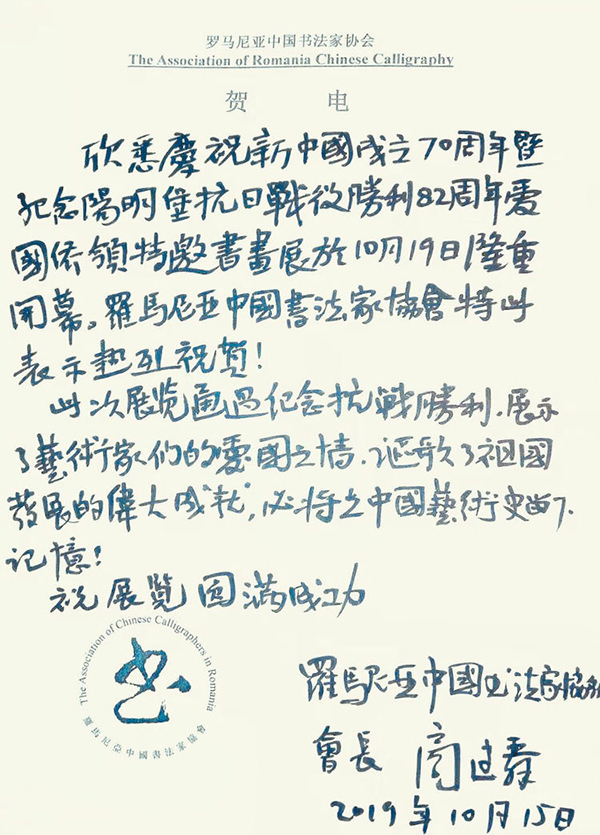 罗马尼亚中国书法家协会
The Association of Romania Chinese Calligraphy
贺 电
欣悉慶祝新中國成立70周年暨
纪念陽明堡抗日戰役勝利82周年爱
國侨領特邀書畫展於10月19日隆重
開幕。羅馬尼亚中國書法家協會特此
表示热烈祝贺！
此次展览通過纪念抗戰勝利、展示
了藝術家们的爱國之情、讴歌了祖國
發展的偉大成就，必将在中國藝術史留下
记憶！
祝展览圆满成功
The Association of Chinese Calligraphers in Romania
书
羅瑪尼亞中國書法家協會
羅馬尼亚中國书法家協会
會長 閻过
2019年10月15日